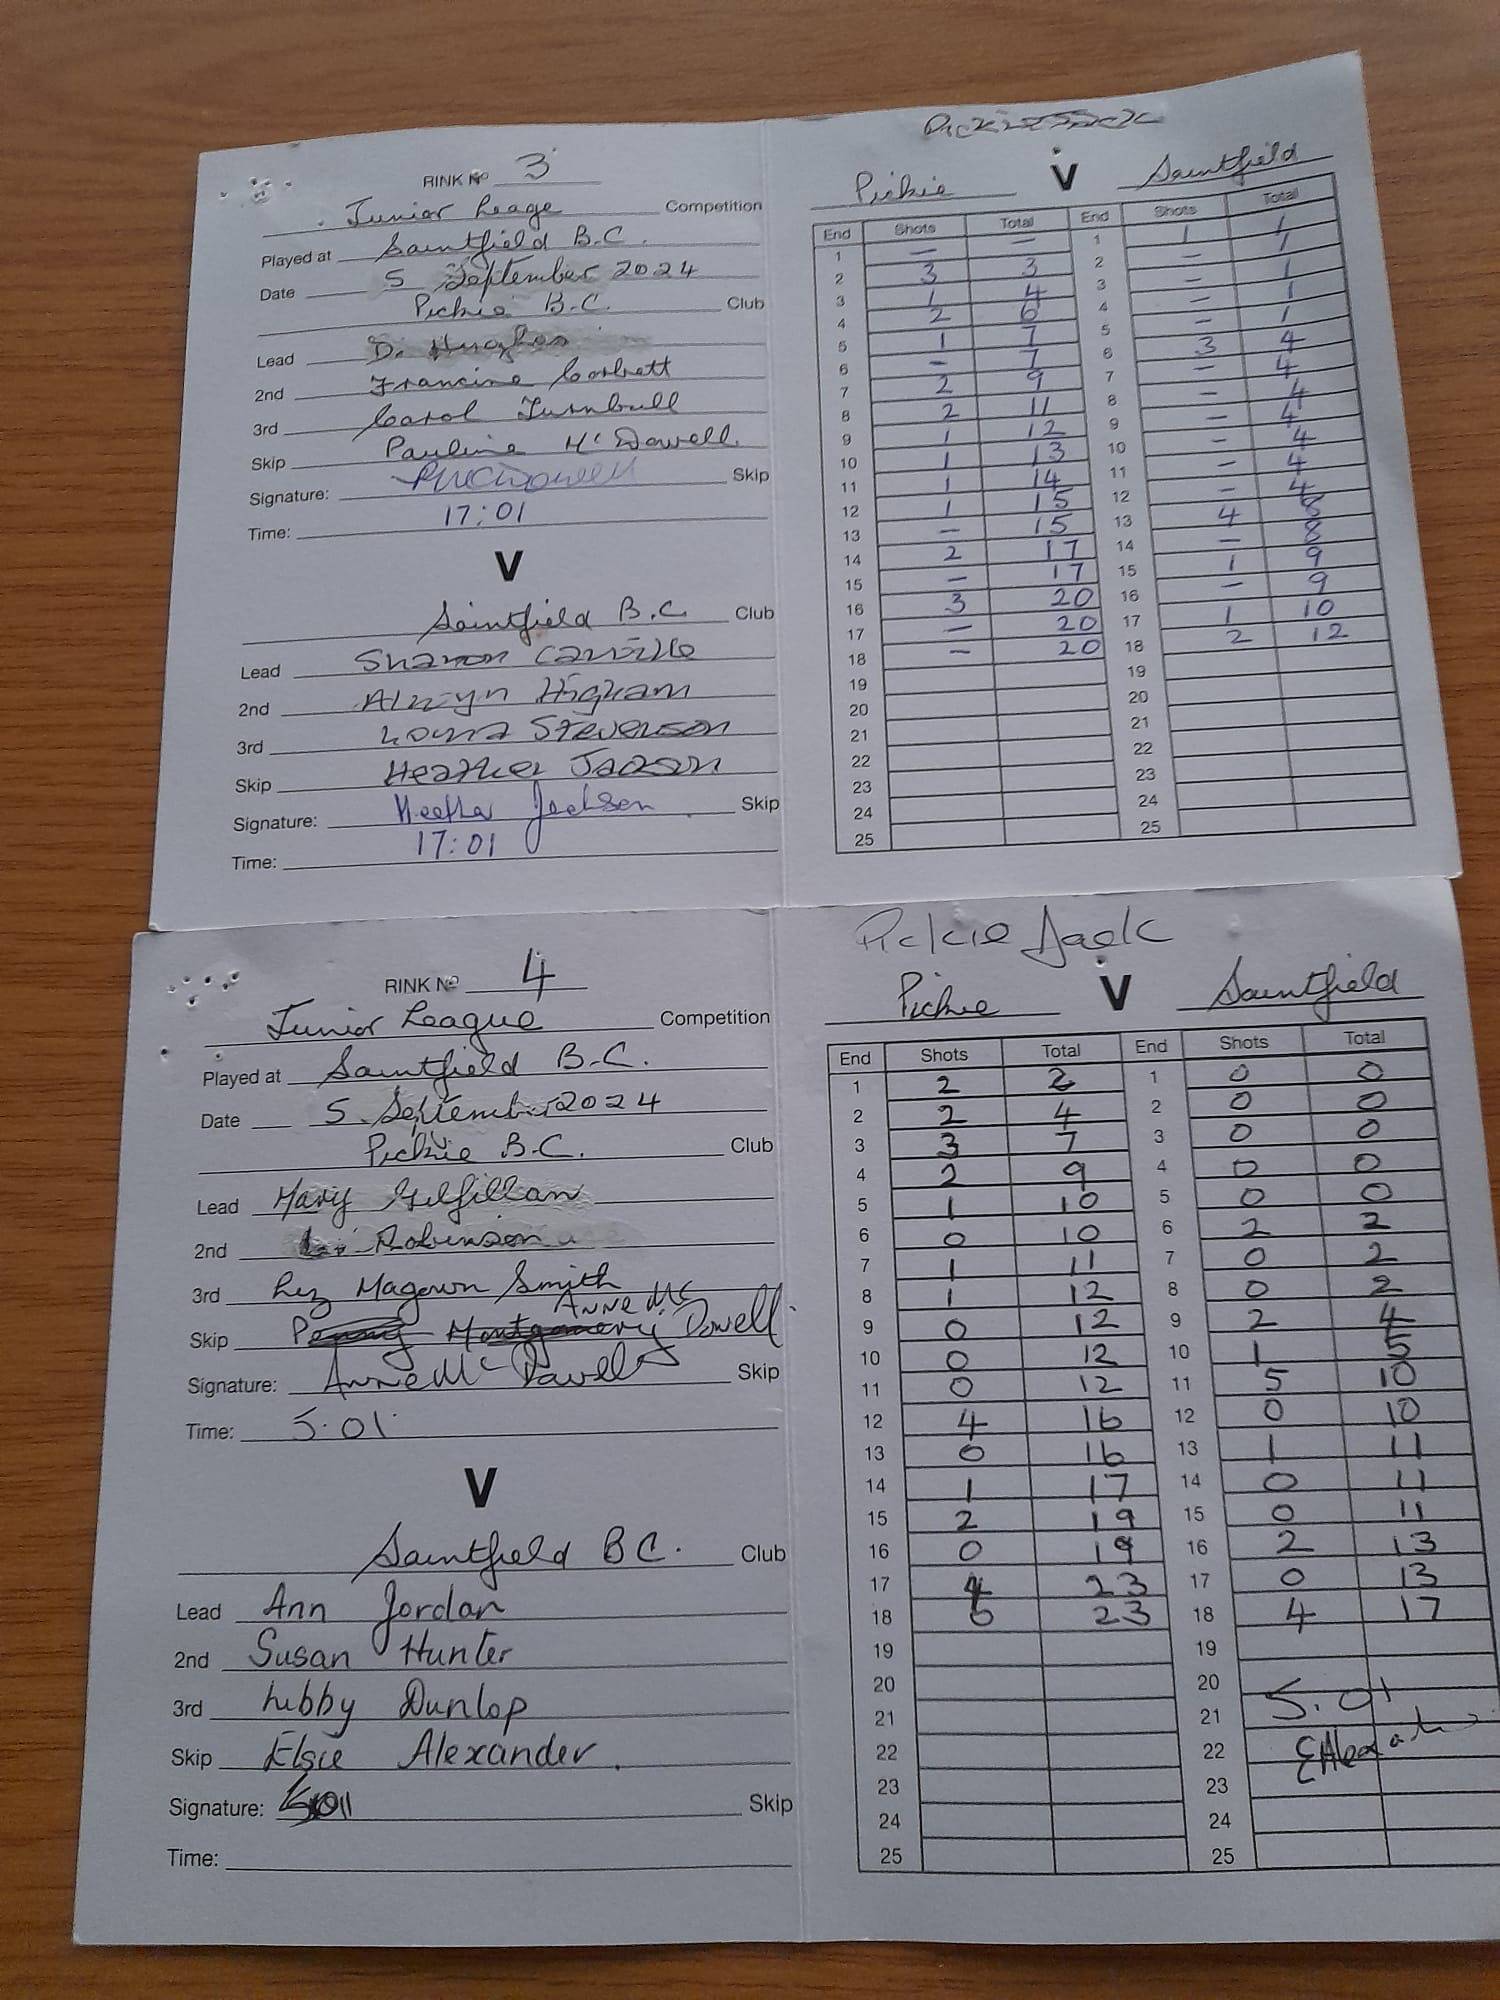 RINK Nº 3
Junior Leage Competition
Played at Saintfield B.C.
Date 5 September 2024
Pickie B.C. Club
Lead D. Hughes
2nd Francine Corbett
3rd Carol Turnbull
Skip Pauline McDowell
Signature: PMcDowell Skip
Time: 17:01
V
Saintfield B.C. Club
Lead Sharon
2nd Alwyn Higham
3rd Lorna Stevenson
Skip Heather Jackson
Signature: Heather Jackson Skip
Time: 17:01
Pickie V Saintfield
End Shots Total End Shots Total
1 — — 1 1 1
2 3 3 2 — 1
3 1 4 3 — 1
4 2 6 4 — 1
5 1 7 5 — 1
6 — 7 6 3 4
7 2 9 7 — 4
8 2 11 8 — 4
9 1 12 9 — 4
10 1 13 10 — 4
11 1 14 11 — 4
12 1 15 12 — 4
13 — 15 13 4 8
14 2 17 14 — 8
15 — 17 15 1 9
16 3 20 16 — 9
17 — 20 17 1 10
18 — 20 18 2 12
19 19
20 20
21 21
22 22
23 23
24 24
25 25
RINK Nº 4
Junior League Competition
Played at Saintfield B.C.
Date 5 September 2024
Pickie B.C. Club
Lead Mary Gilfillan
2nd Robinson
3rd Liz Magown Smith
Skip Penny Montgomery Anne McDowell
Signature: Anne McDowell Skip
Time: 5.01
V
Saintfield BC. Club
Lead Ann Jordan
2nd Susan Hunter
3rd Libby Dunlop
Skip Elsie Alexander.
Signature: Skip
Time:
Pickie Jack
Pickie V Saintfield
End Shots Total End Shots Total
1 2 2 1 0 0
2 2 4 2 0 0
3 3 7 3 0 0
4 2 9 4 0 0
5 1 10 5 0 0
6 0 10 6 2 2
7 1 11 7 0 2
8 1 12 8 0 2
9 0 12 9 2 4
10 0 12 10 1 5
11 0 12 11 5 10
12 4 16 12 0 10
13 0 16 13 1 11
14 1 17 14 0 11
15 2 19 15 0 11
16 0 19 16 2 13
17 4 23 17 0 13
18 0 23 18 4 17
19 19
20 20
21 21 5.01
22 22
23 23
24 24
25 25